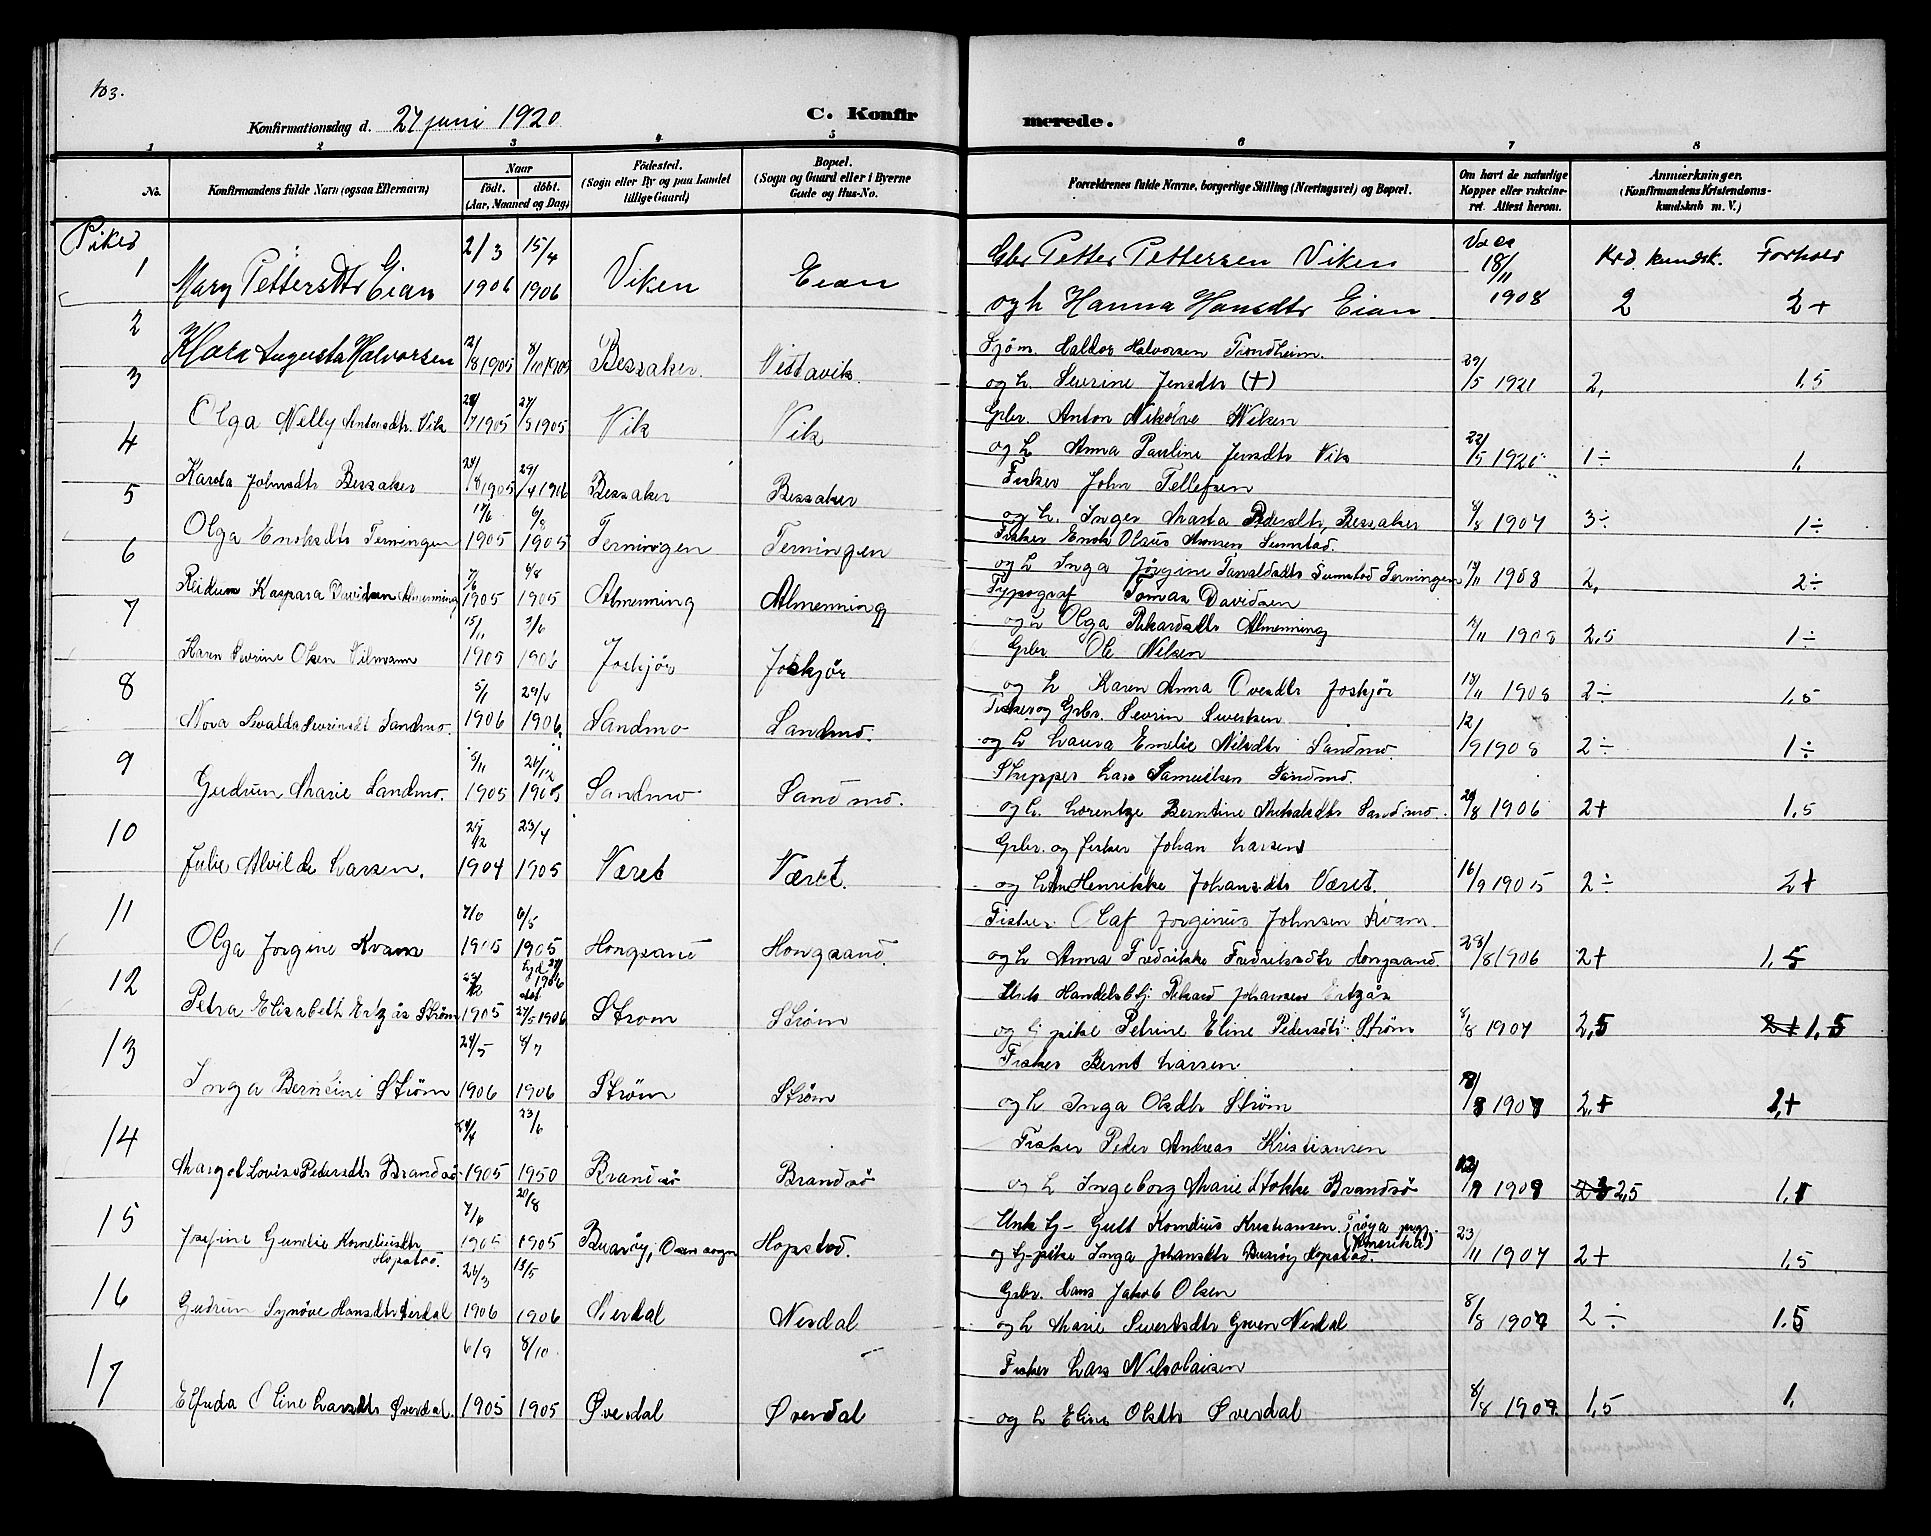 103.
Konfirmationsdag d. 27 juni 1920
C. Konfir
merede.
1 2 3 4 5 6 7 8
No.
Konfirmandens fulde Navn (ogsaa Efternavn)
Naar
født. døbt.
(Aar, Maaned og Dag)
Födested.
(Sogn eller By og paa Landet
tillige Gaard)
Bopæl.
(Sogn og Gaard eller i Byerne
Gade og Hus-No.
Forældrenes fulde Navne, borgerlige Stilling (Næringsvei) og Bopæl.
Om havt de naturlige
Kopper eller vakcine-
ret. Attest herom.
Anmærkninger.
(Konfirmandens Kristendoms-
kundskab m. V.)
Piker
Krd. kundsk. Forhold
1 Mary Pettersdtr Eian 2/3 1906 15/4 1906 Viken Eian
Gbr Petter Pettersen Viken
og h Hanna Hansdtr Eian 18/11 1908 2 2+
2 Klara Augusta Halvorsen 12/8 1905 8/10 1905 Bessaker. Vistavik.
Sjöm. Haldor Halvorsen Trondheim.
og h. Sevrine Jensdtr (+) 29/5 1921 2, 1,5
3 Olga Nelly Antonsdtr. Vik 1905 1905 Vik Vik
Gbr. Anton Nikolai Nilsen
og h Anna Pauline Jensdtr Vik 22/5 1 ÷ 1,
4 Karda Johnsdtr Bessaker 1905 29/4 1906 Bessaker Bessaker
Fisker John Tellefsen
og h. Inger Marta Pedersdtr, Bessaker 8/8 1907 3÷ 1÷
5 Olga Enoksdtr Terningen 17/6 1905 6/8 1905 Terningen Terningen
Fisker Enok Olaus Monsen Sumstad.
og h Inga Jörgine Sumstad Terningen 1908 2, 2÷
6 Reidun Kaspara Davidsen Almenning 7/6 1905 6/8 1905 Almenning Almenning
Typograf Tomas Davidsen
og h Olga Rikardsdtr Almenning 1908 2,5 1÷
7 Karen Sevrine Olsen Vilmann 15/11 1905 3/6 Joskjör Joskjör
Gbr. Ole Nilsen
og h Karen Anna Ovesdtr Joskjör 18/11 1908 2÷ 1,5
8 Nora Sevalda Sevrinsdt Sandmo. 5/1 1906 29/4 1906. Sandmo Sandmo.
Fisker og Gbr. Sevrin Sivertsen
og h Laura Emelie Nilsdtr Sandmo 12/9 1908 2÷ 1÷
9 Gudrun Marie Sandmo. 3/11 1905 26/12 1905 Sandmo Sandmo.
Skipper Lars Samuelsen Sandmo.
og h. Lorentze Berntine Sandmo. 29/8 1906 2+ 1,5
10 Julie Alvilde Larsen. 25/12 1904 23/4 1905 Været Været.
Gbr. og fisker Johan Larsen
og h Henrikke Johansdtr Været. 16/9 1905 2÷ 2+
11 Olga Jorgine Kvam 1905 6/5 1905 Hongsand Hongsand
Fisker. Olaf Jorginus Johnsen Kvam
og h Anna Fredrikke Fredriksdtr Hongsand. 29/8 1906 2+ 1,5
12 Petra Elisabeth Ertzås Ström 1905 27/5 1906 Strøm Strøm
Unk Handelsbtj. Rikard Johansen Ertzås
og pike Petrine Eline Pedersdtr Strøm 8/8 1907 2,5 2+ 1,5
13 Inga Berntine Strøm 24/5 1906 8/7 1906 Strøm Strøm
Fisker Bernt Larsen
og h Inga Olsdtr Strøm 2,+ 2,+
14 Margot Lovise Pedersdtr Brandsö 1905 23/6 1950 Brandsö Brandsö
Fisker Peder Andreas Kristiansen
og h Ingeborg Marie Stokke Brandsö 2,5 1,
15 Josefine Gundie Korneliusdtr Hopstad. 7/6 1905 20/8 1905 Buaröy, Osen sogn Hopstad.
Unk G- Gutt Kornelius Kristiansen. (Amerika)
og G-pike Inga Johansdtr Buaröy Hopstad. 23/11 1907 2+ 1,5
16 Gudrun Synöve Hansdtr Nerdal 26/3 1906 13/5 1906 Nerdal Nerdal
Gbr. Hans Jakob Olsen
og h Marie Sivertsdtr Nerdal 8/8 1907 2÷ 1.5
17 Elfrida Oline Larsdtr Øverdal. 6/9 1905 8/10 1905 Øverdal Øverdal
Fisker Lars Nikolaisen
og h Eline Olsdtr Øverdal 8/8 1907. 1,5 1,